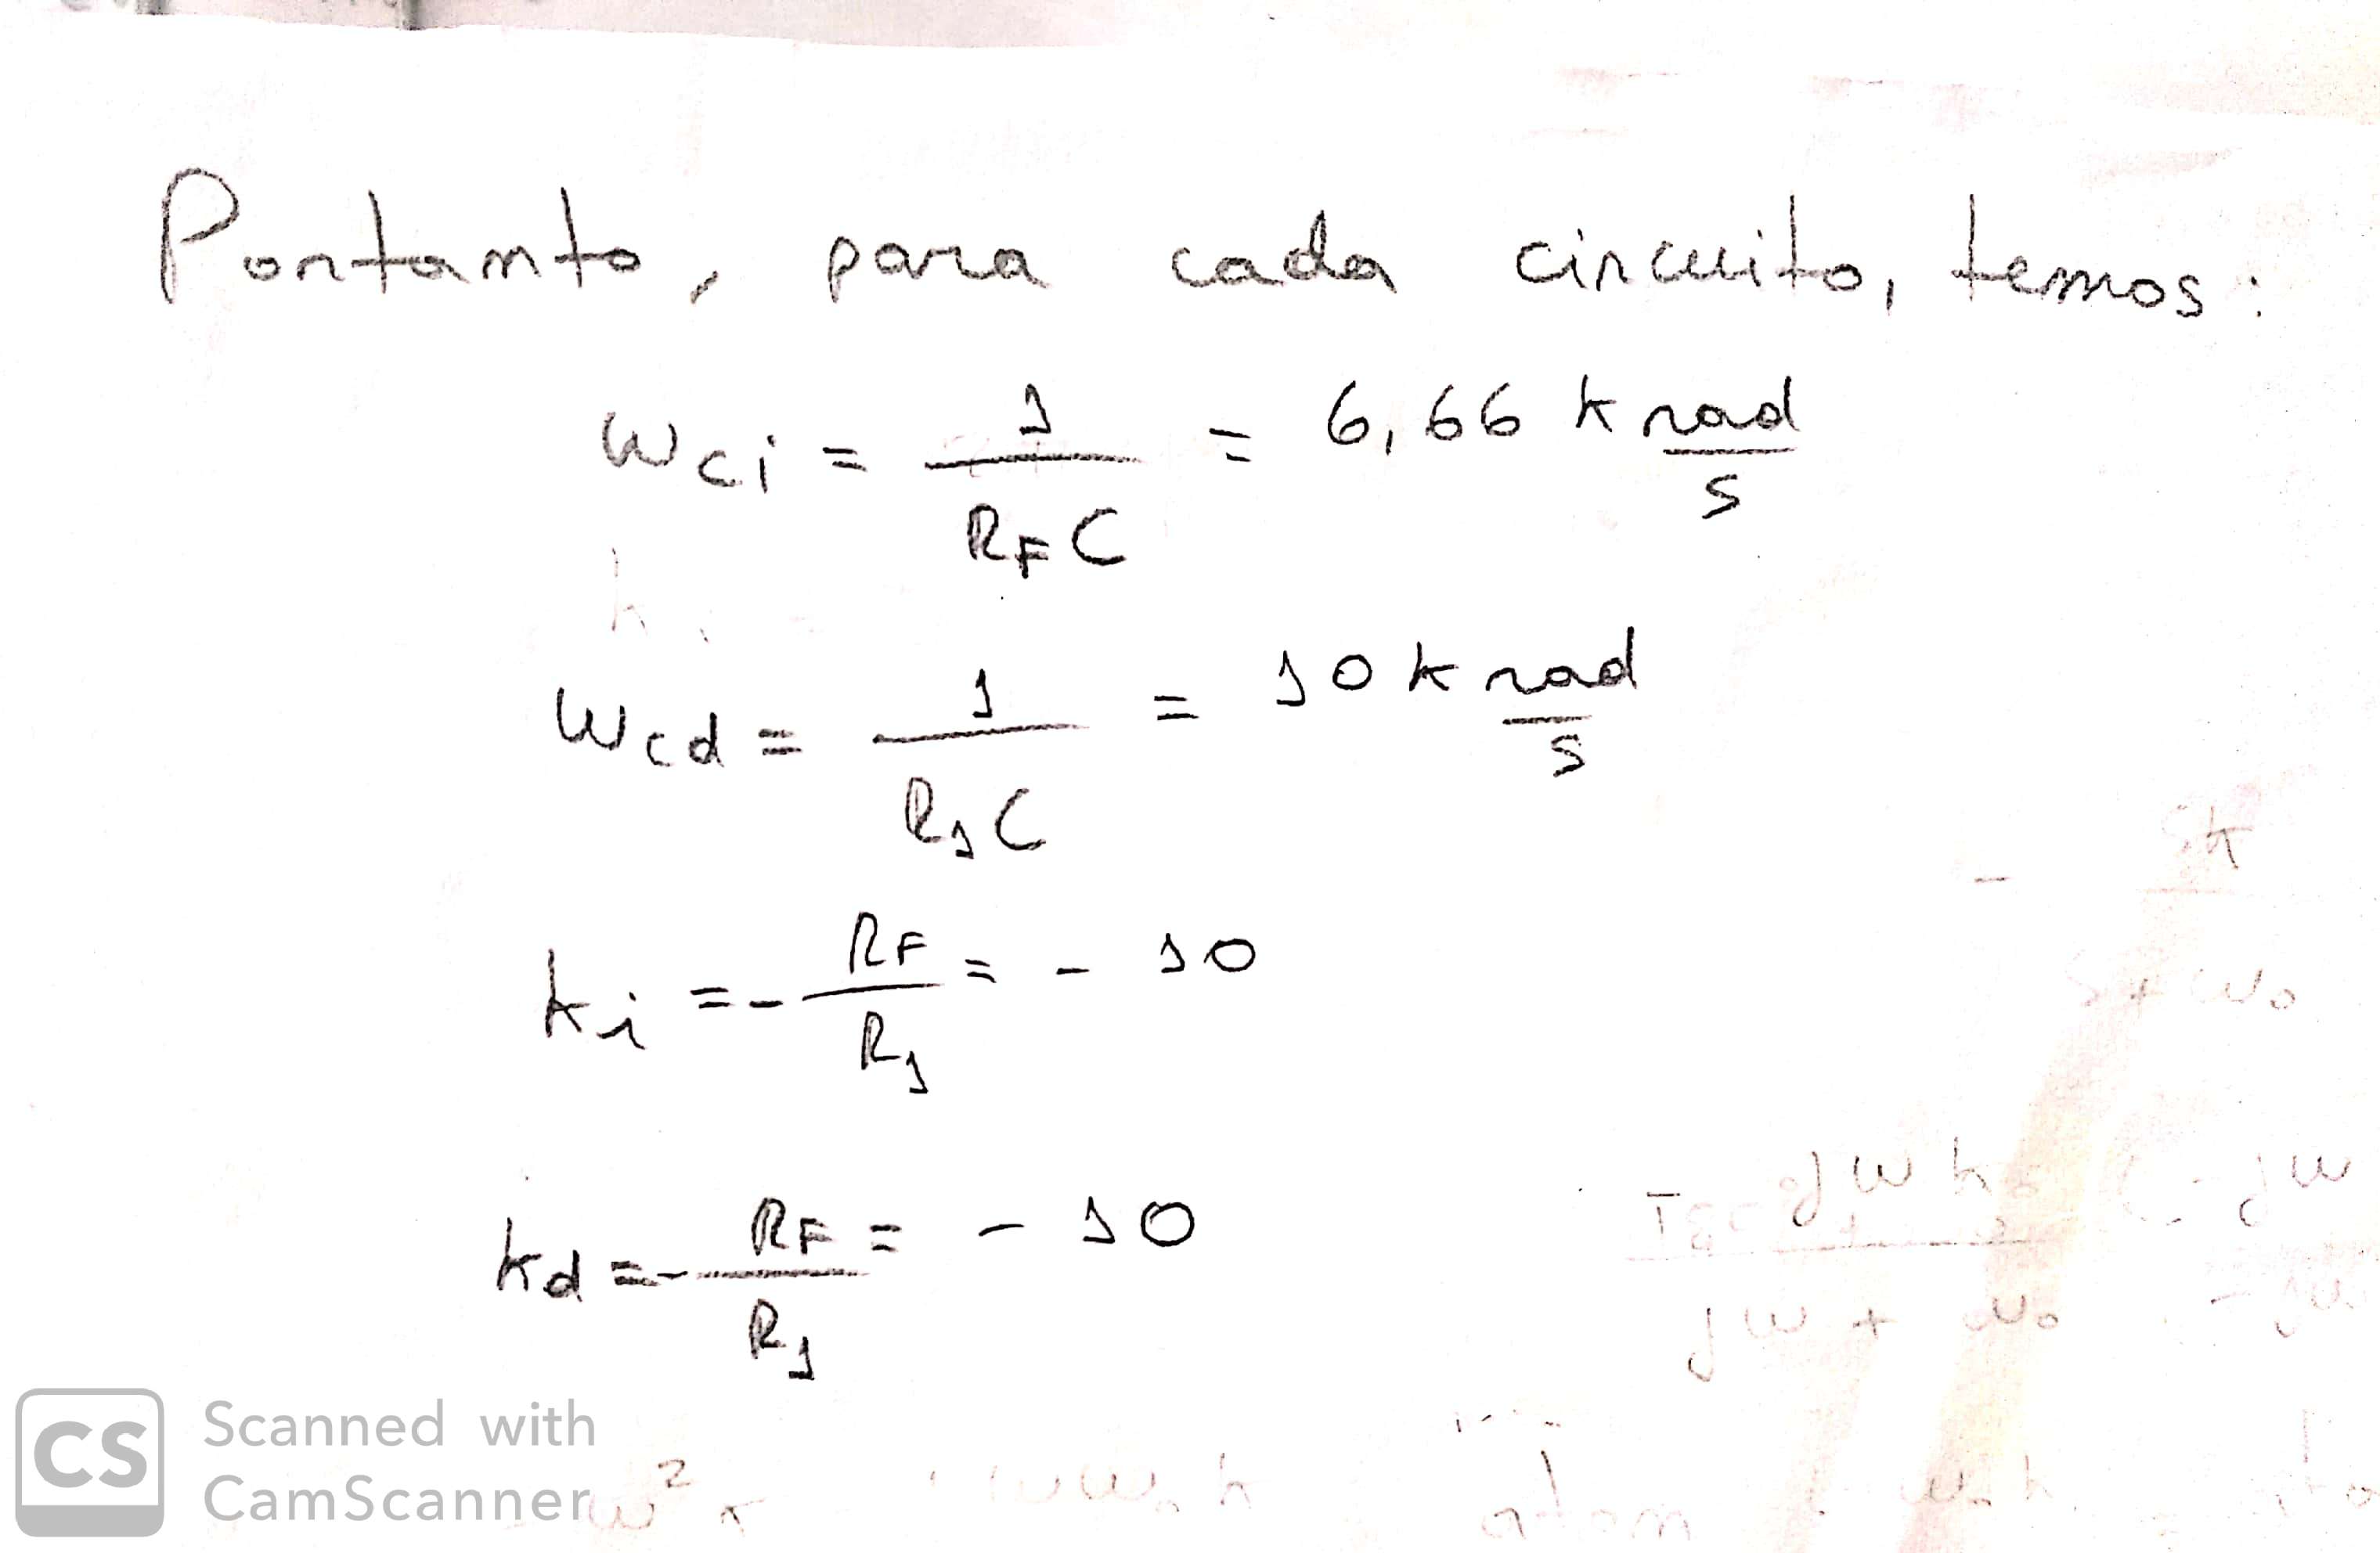 Portanto, para cada circuito, temos:
ωci = 1 / (RF C) = 6,66 k rad/s
ωcd = 1 / (R1 C) = 10 k rad/s
ki = - RF / R1 = - 10
kd = - RF / R1 = - 10
CS Scanned with
CamScanner